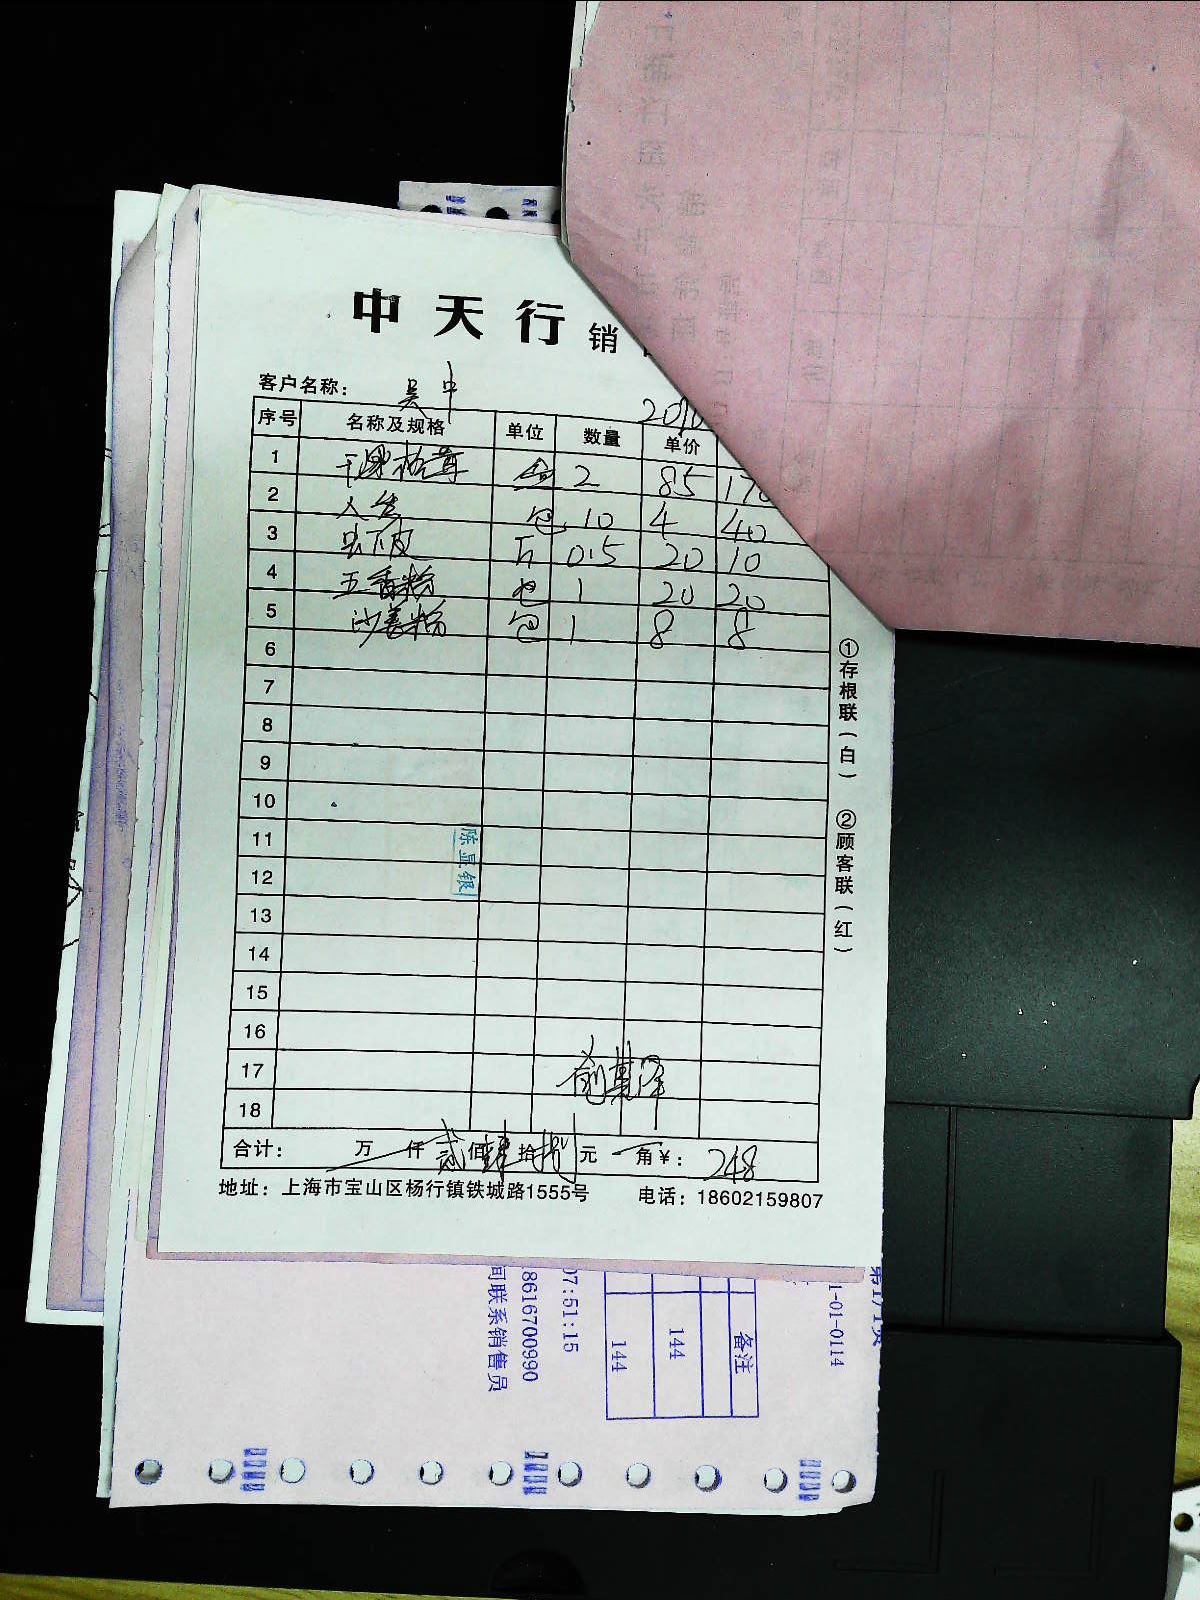 中天行 销
客户名称： 吴中
2010
序号 名称及规格 单位 数量 单价
1 2 85 170
2 包 10 4 40
3 斤 0.5 20 10
4 五香粉 包 1 20 20
5 沙姜粉 包 1 8 8
6
7
8
9
10
11
12
13
14
15
16
17
18
陈显银
合计： 万 仟 贰佰肆拾捌元 角￥： 248
地址：上海市宝山区杨行镇铁城路1555号 电话：18602159807
①存根联（白） ②顾客联（红）
1-01-0114
备注
144
144
07:51:15
8616700990
间联系销售员